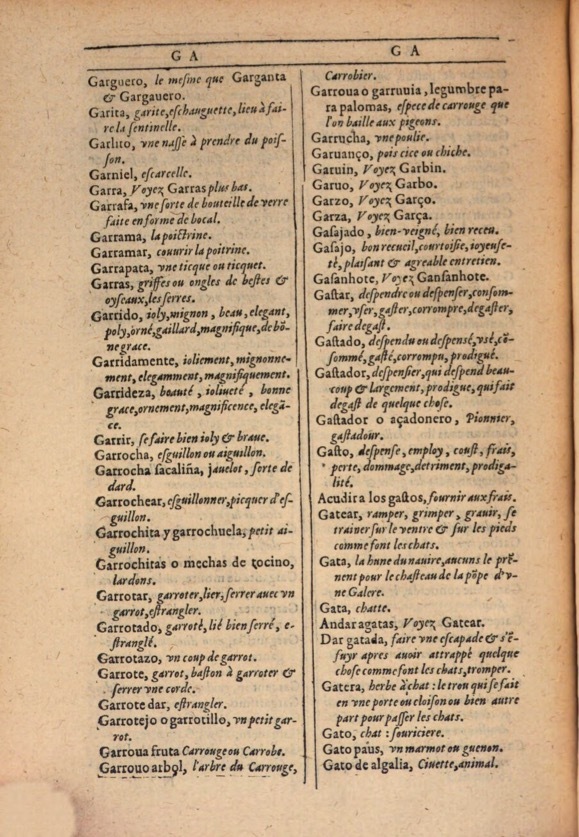 G A
Garguero, le mesme que Garganta
& Gargauero.
Garita, garite, eschauguette, lieu à fai-
re la sentinelle.
Garlito, vne nasse à prendre du pois-
son.
Garniel, escarcelle.
Garra, Voyez Garras plus bas.
Garrafa, vne sorte de bouteille de verre
faite en forme de bocal.
Garrama, la poictrine.
Garramar, couurir la poitrine.
Garrapata, vne ticque ou ticquet.
Garras, griffes ou ongles de bestes &
oyseaux, les serres.
Garrido, ioly, mignon, beau, elegant,
poly, orné, gaillard, magnifique, de bõ-
ne grace.
Garridamente, ioliement, mignonne-
ment, elegamment, magnifiquement.
Garrideza, beauté, ioliueté, bonne
grace, ornement, magnificence, elegã-
ce.
Garrir, se faire bien ioly & braue.
Garrocha, esguillon ou aiguillon.
Garrocha sacaliña, jauelot, sorte de
dard.
Garrochear, esguillonner, picquer d'es-
guillon.
Garrochita y garrochuela, petit ai-
guillon.
Garrochitas o mechas de tocino,
lardons.
Garrotar, garroter, lier, serrer auec vn
garrot, estrangler.
Garrotado, garroté, lié bien serré, e-
stranglé.
Garrotazo, vn coup de garrot.
Garrote, garrot, baston à garroter &
serrer vne corde.
Garrote dar, estrangler.
Garrotejo o garrotillo, vn petit gar-
rot.
Garroua fruta Carrouge ou Carrobe.
Garrouo arbol, l'arbre du Carrouge,
G A
Carrobier.
Garroua o garruuia, legumbre pa-
ra palomas, espece de carrouge que
l'on baille aux pigeons.
Garrucha, vne poulie.
Garuanço, pois cice ou chiche.
Garuin, Voyez Garbin.
Garuo, Voyez Garbo.
Garzo, Voyez Garço.
Garza, Voyez Garça.
Gasajado, bien-veigné, bien receu.
Gasajo, bon recueil, courtoisie, ioyeuse-
té, plaisant & agreable entretien.
Gasanhote, Voyez Gansanhote.
Gastar, despendre ou despenser, consom-
mer, vser, gaster, corrompre, degaster,
faire degast.
Gastado, despendu ou despensé, vsé, cõ-
sommé, gasté, corrompu, prodigué.
Gastador, despensier, qui despend beau-
coup & largement, prodigue, qui fait
degast de quelque chose.
Gastador o açadonero, Pionnier,
gastadour.
Gasto, despense, employ, coust, frais,
perte, dommage, detriment, prodiga-
lité.
Acudir a los gastos, fournir aux frais.
Gatear, ramper, grimper, grauir, se
trainer sur le ventre & sur les pieds
comme font les chats.
Gata, la hune du nauire, aucuns le prẽ-
nent pour le chasteau de la põpe d'v-
ne Galere.
Gata, chatte.
Andar a gatas, Voyez Gatear.
Dar gatada, faire vne escapade & s'ẽ-
fuyr apres auoir attrappé quelque
chose comme font les chats, tromper.
Gatera, herbe à chat : le trou qui se fait
en vne porte ou cloison ou bien autre
part pour passer les chats.
Gato, chat : souriciere.
Gato paus, vn marmot ou guenon.
Gato de algalia, Ciuette, animal.